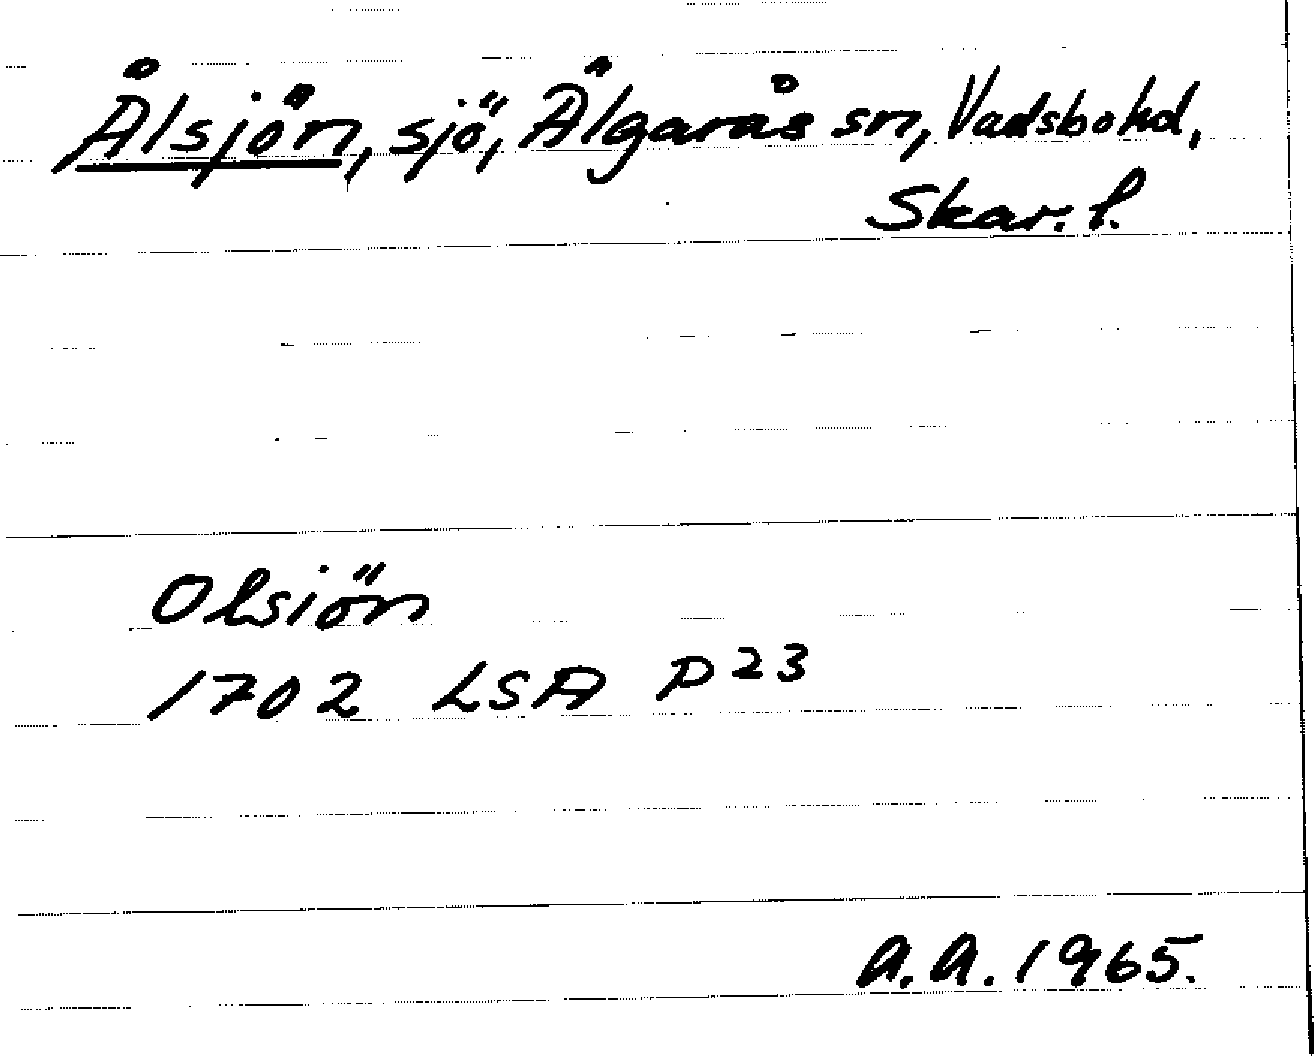 Ålsjön, sjö, Älgarås sn, Vadsbo hd,
Skar. l.
Olsiön
1702 LSA P 23
A.A. 1965.